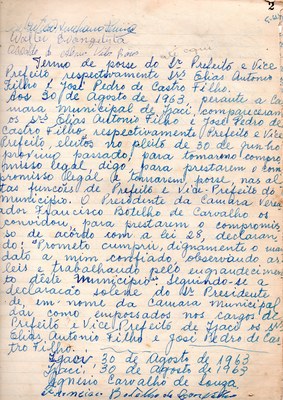 2
Walter Evangelista
Termo de posse do Sr Prefeito e Vice
Prefeito, respectivamente Srs Elias Antonio
Filho e José Pedro de Castro Filho.
Aos 30 de Agosto de 1963, perante a Ca-
mara Municipal de Ijaci, compareceram
os srs Elias Antonio Filho e José Pedro de
Castro Filho, respectivamente Prefeito e Vice
Prefeito, eleitos no pleito de 30 de junho
proximo passado, para tomarem o compro-
misso legal, digo, para prestarem o com-
promisso legal e tomarem posse, nas al-
tas funcões de Prefeito e Vice-Prefeito do
municipio. O Presidente da Câmara Verea-
dor Francisco Botelho de Carvalho os
convidou, para prestarem o compromis-
so de acôrdo com a lei 28, declaran-
do: "Prometo cumprir, dignamente o man-
dato a mim confiado, observando as
leis e trabalhando pelo engrandecimen-
to deste Municipio". Seguindo-se a
declaração solene do Sr Presidente
de, em nome da Camara Municipal
dar como empossados nos cargos de
Prefeito e Vice Prefeito de Ijaci os srs
Elias Antonio Filho e José Pedro de Cas-
tro Filho.
Ijaci, 30 de Agosto de 1963
Ijaci, 30 de Agosto de 1963
Agnesio Carvalho de Souza
Francisco Botelho de Carvalho